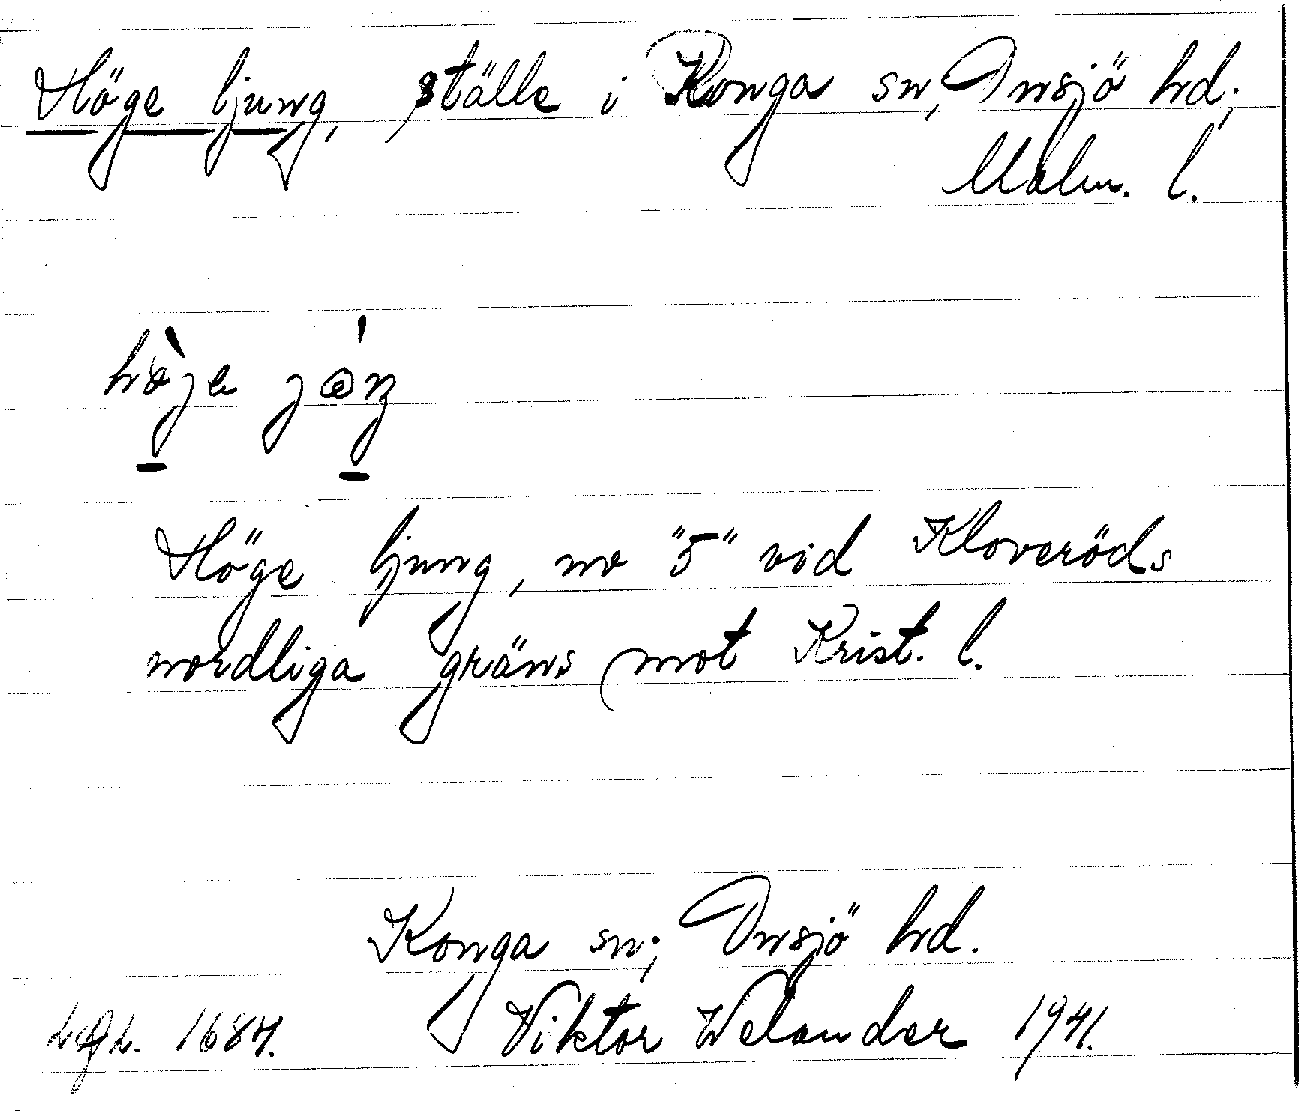 Höge ljung, ställe i Konga sn, Onsjö hd;
Malm. l.
höje
Höge ljung, nr "5" vid Kloveröds
nordliga gräns mot Krist. l.
Konga sn; Onsjö hd.
1684. Viktor Welander 1941.